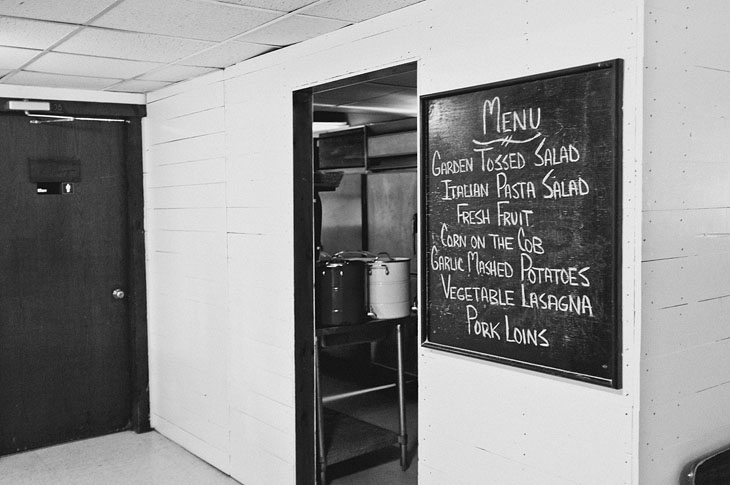 MENU
GARDEN TOSSED SALAD
ITALIAN PASTA SALAD
FRESH FRUIT
CORN ON THE COB
GARLIC MASHED POTATOES
VEGETABLE LASAGNA
PORK LOINS